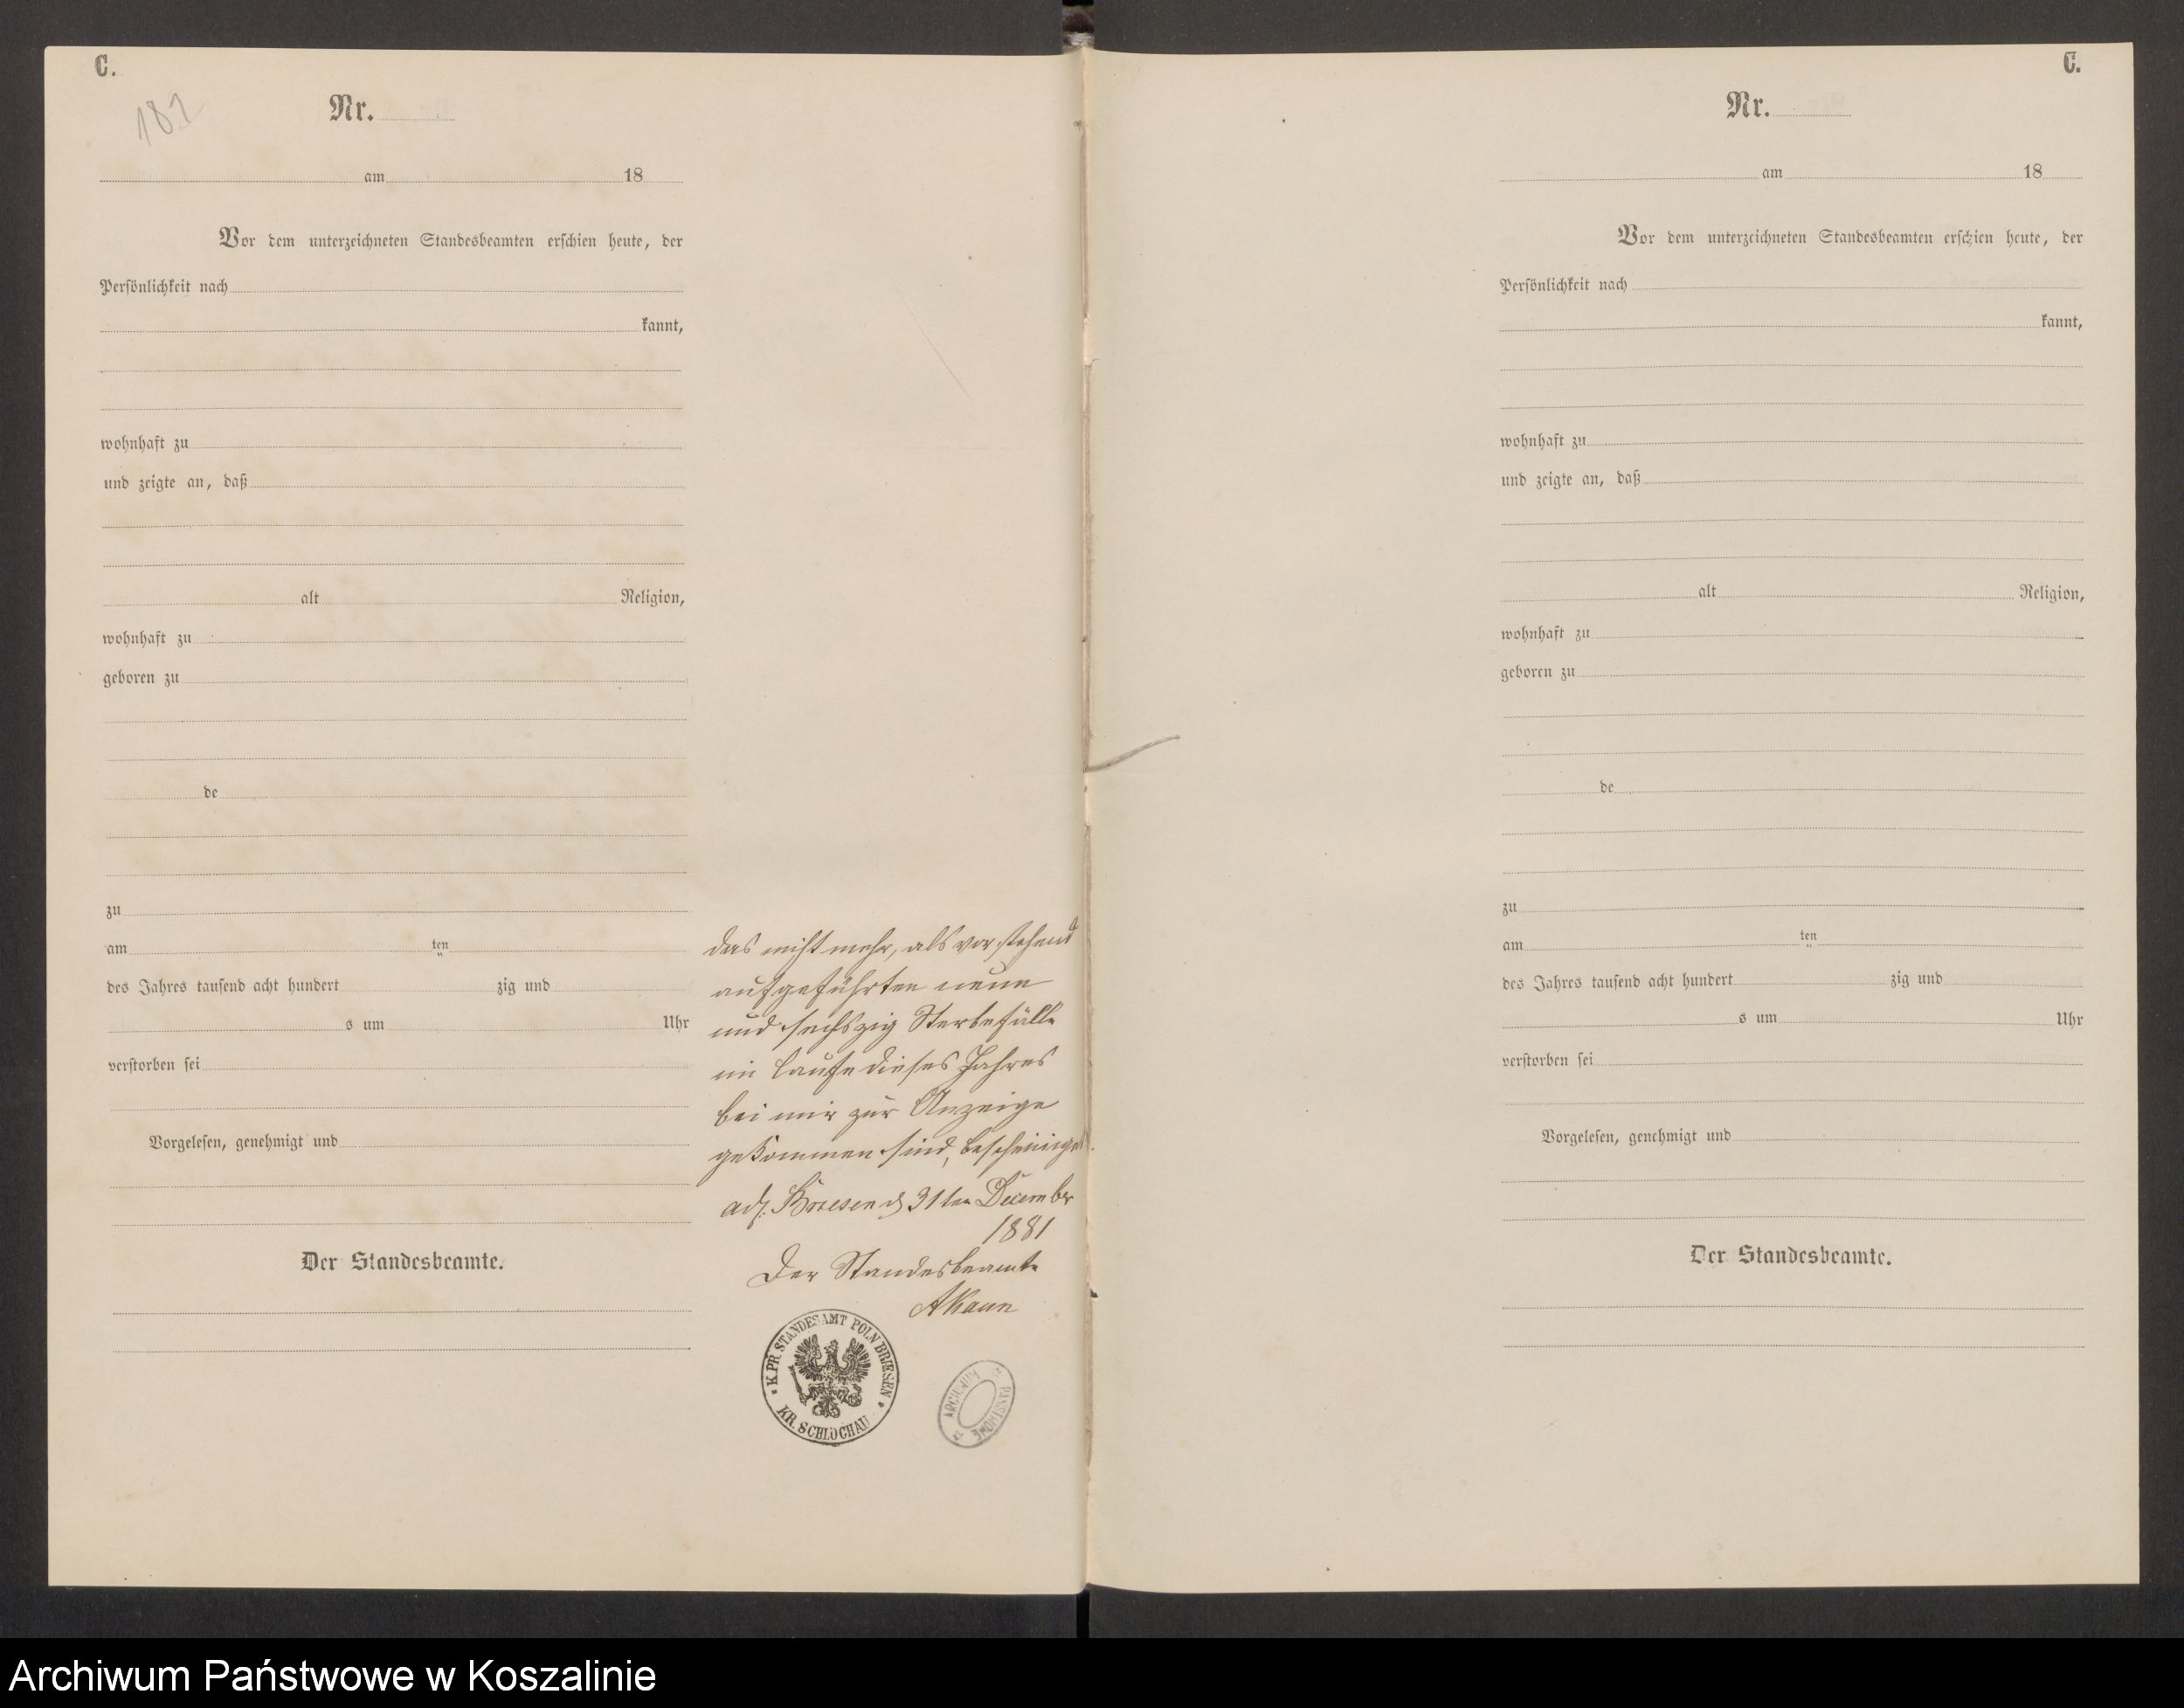 C.
Nr.
am 18
Vor dem unterzeichneten Standesbeamten erschien heute, der
Persönlichkeit nach
kannt,
wohnhaft zu
und zeigte an, daß
alt Religion,
wohnhaft zu
geboren zu
de
zu
am ten
des Jahres tausend acht hundert zig und
s um Uhr
verstorben sei
Vorgelesen, genehmigt und
Der Standesbeamte.
das nicht mehr, als vorstehend
aufgeführten neun
und sechszig Sterbefälle
im Laufe dieses Jahres
bei mir zur Anzeige
gekommen sind, bescheinigt.
Briesen d 31ten December
1881
Der Standesbeamte
AKaun
K. PR. STANDESAMT POLN. BRIESEN
KR. SCHLOCHAU
ARCHIWUM
PAŃSTWOWE
C.
Nr.
am 18
Vor dem unterzeichneten Standesbeamten erschien heute, der
Persönlichkeit nach
kannt,
wohnhaft zu
und zeigte an, daß
alt Religion,
wohnhaft zu
geboren zu
de
zu
am ten
des Jahres tausend acht hundert zig und
s um Uhr
verstorben sei
Vorgelesen, genehmigt und
Der Standesbeamte.
Archiwum Państwowe w Koszalinie